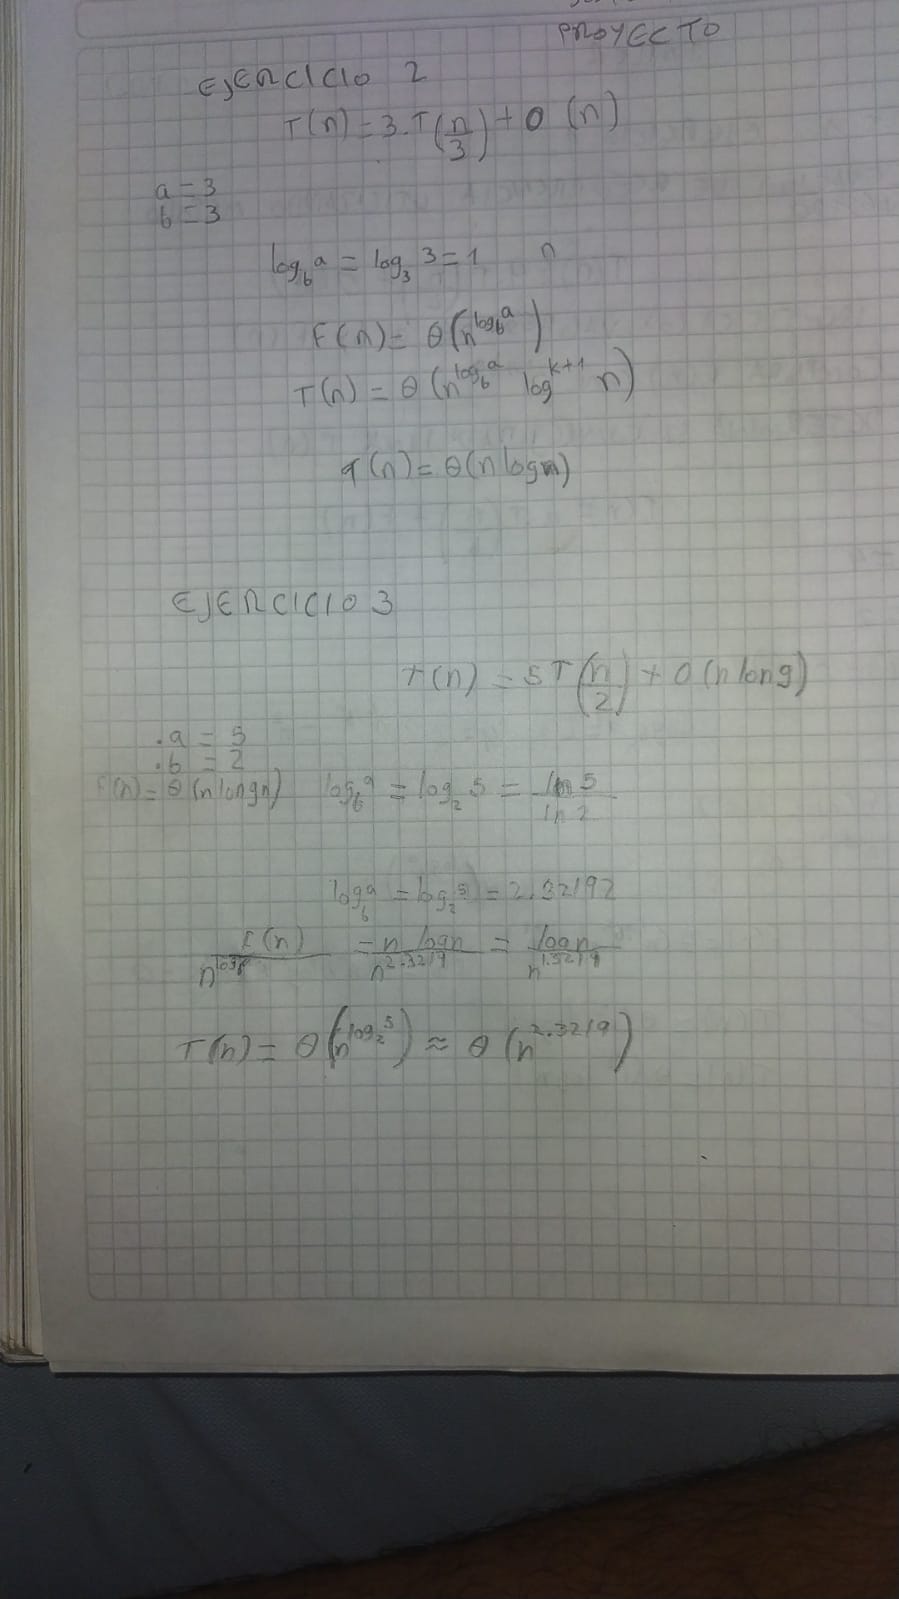 PROYECTO
EJERCICIO 2
T(n) = 3.T(n/3) + O (n)
a = 3
b = 3
log_b a = log_3 3 = 1 n
F(n) = θ(n^log_b a)
T(n) = θ(n^log_b a log^k+1 n)
T(n) = θ(n log n)
EJERCICIO 3
T(n) = 5T(n/2) + O(n long)
.a = 5
.b = 2
F(n) = θ(n longn) log_b a = log_2 5 = ln 5 / ln 2
log_b a = log_2 5 = 2.32192
F(n) / n^log_b = n logn / n^2.3219 = logn / n^1.3219
T(n) = θ(n^log_2 5) ≈ θ(n^2.3219)